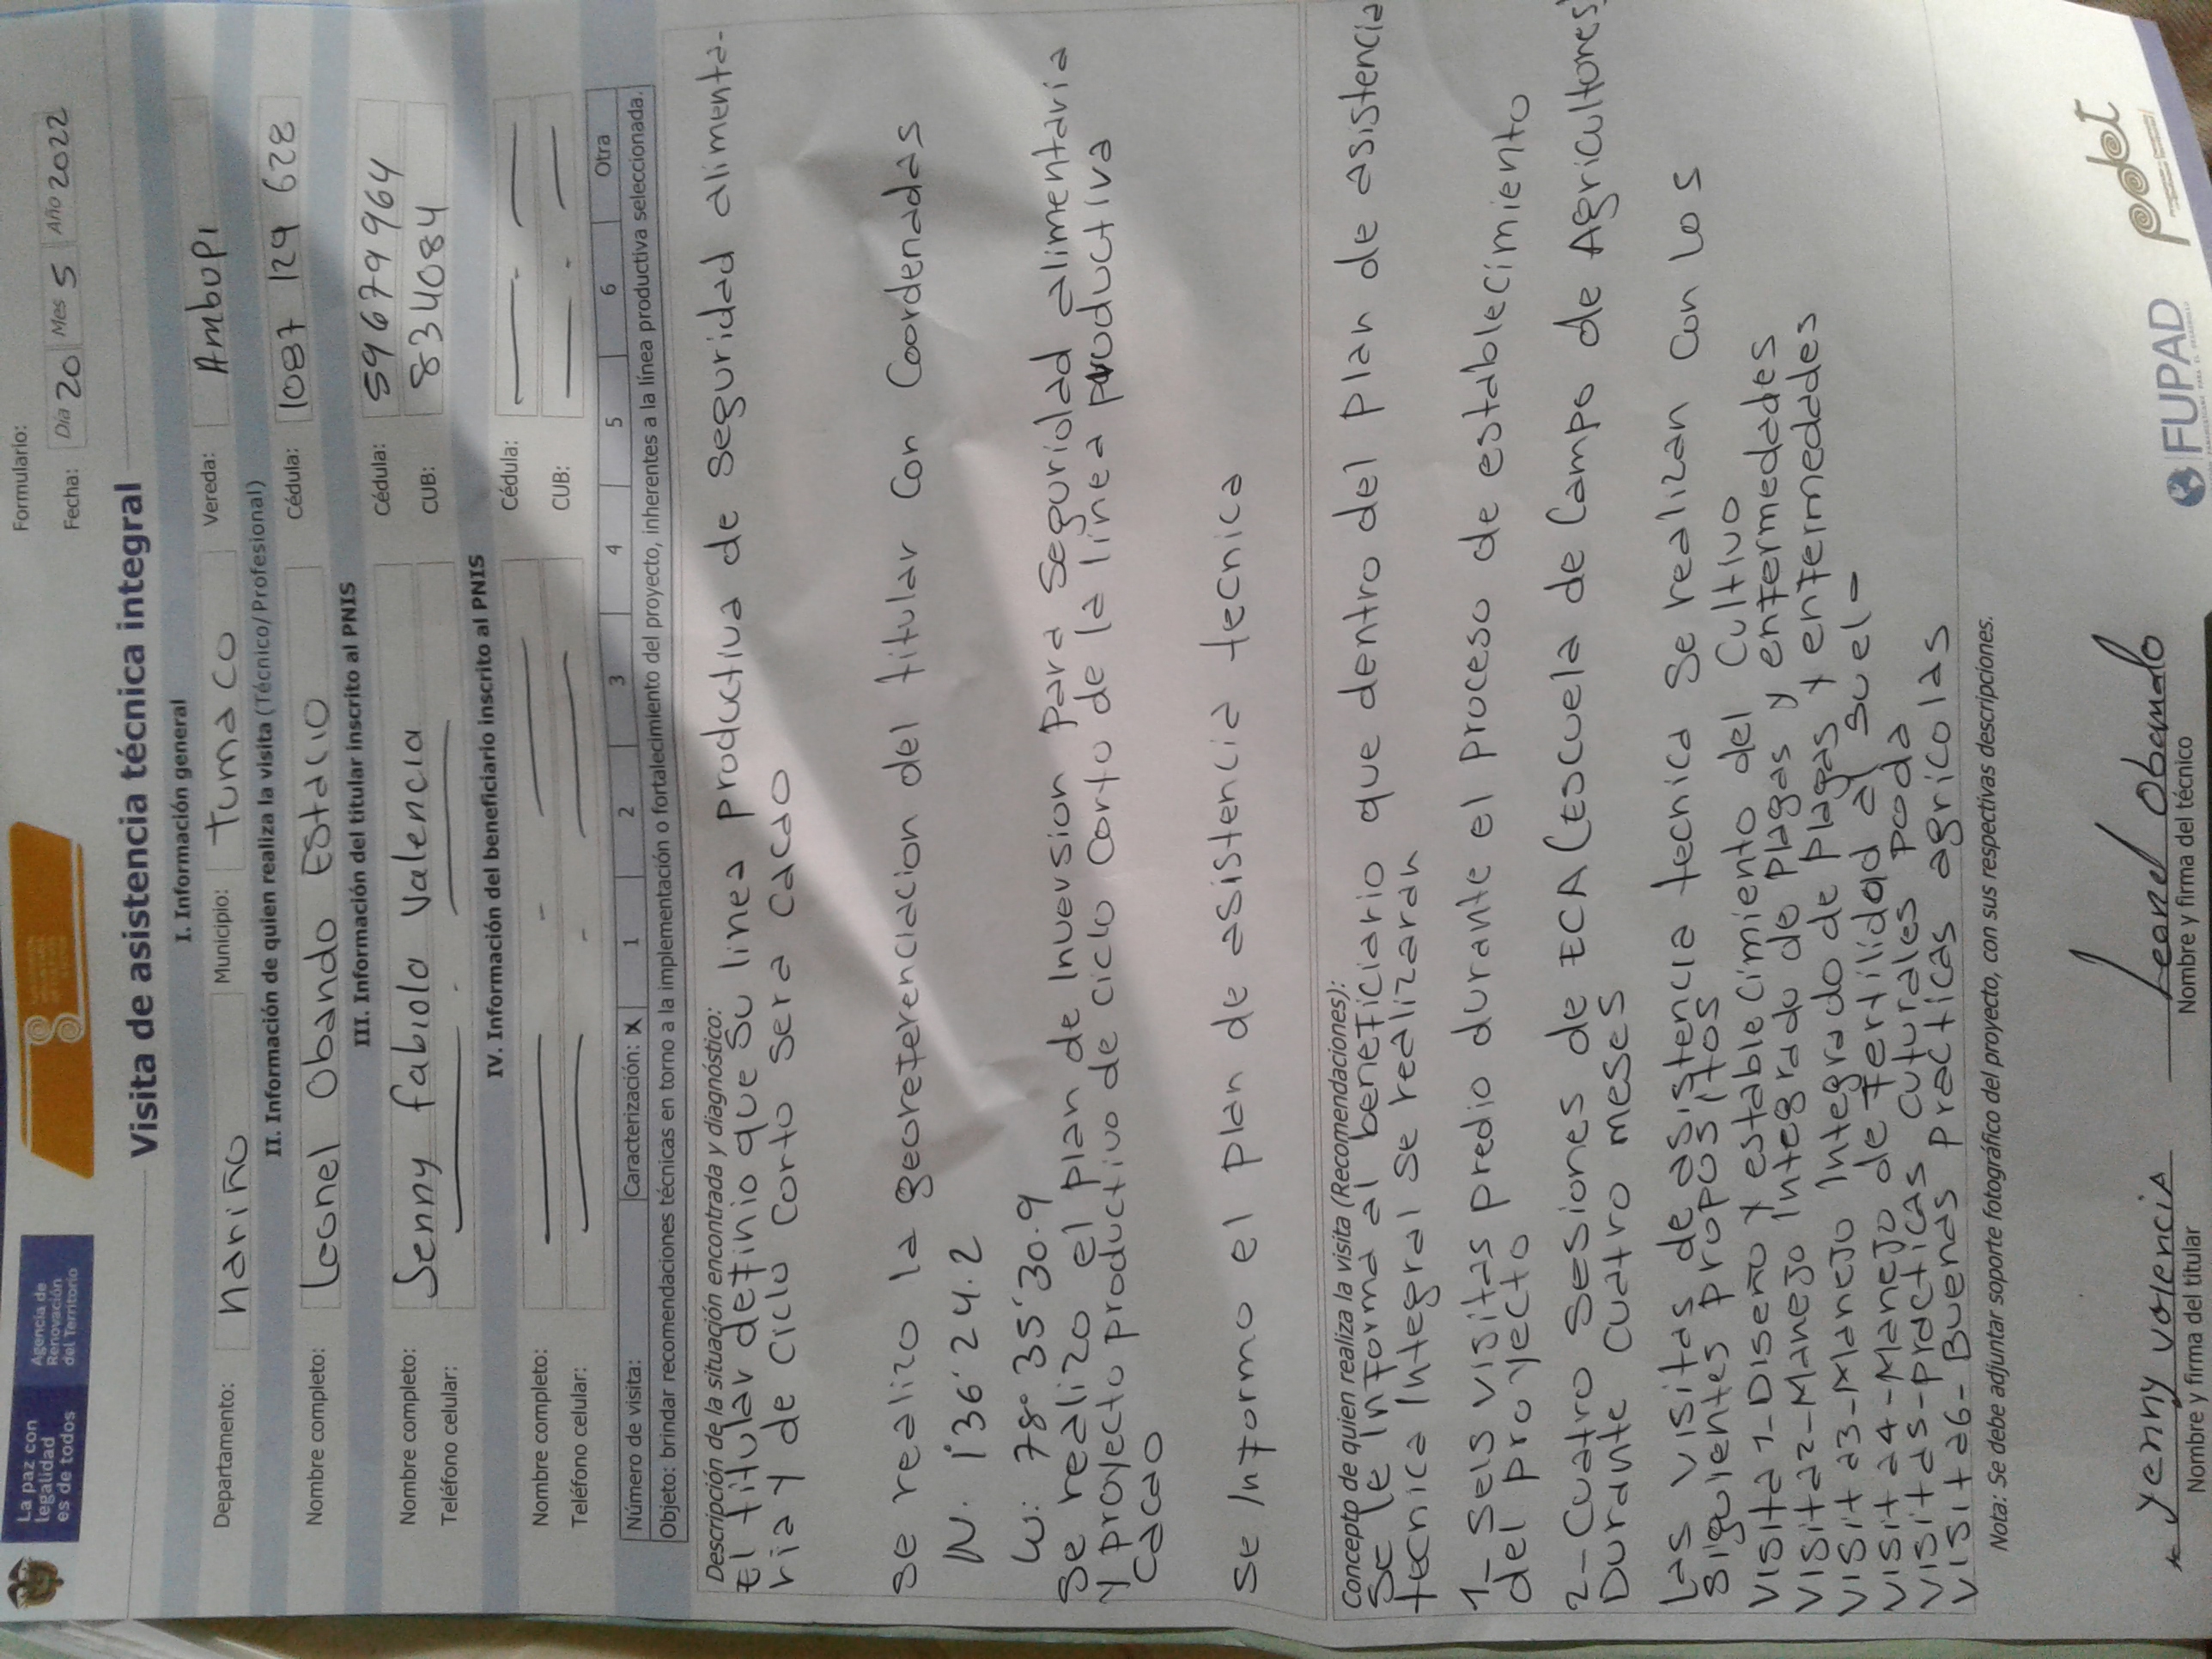 La paz con
legalidad
es de todos
Agencia de
Renovación
del Territorio
Formulario:
Fecha: Día 20 Mes 5 Año 2022
Visita de asistencia técnica integral
I. Información general
Departamento: nariño Municipio: tumaco Vereda: Ambupi
II. Información de quien realiza la visita (Técnico/Profesional)
Nombre completo: Leonel Obando Estacio Cédula: 1087 129 628
III. Información del titular inscrito al PNIS
Nombre completo: Jenny fabiola Valencia Cédula: 59679964
Teléfono celular: CUB: 834084
IV. Información del beneficiario inscrito al PNIS
Nombre completo: Cédula:
Teléfono celular: CUB:
Número de visita: Caracterización: X 1 2 3 4 5 6 Otra
Objeto: brindar recomendaciones técnicas en torno a la implementación o fortalecimiento del proyecto, inherentes a la línea productiva seleccionada.
Descripción de la situación encontrada y diagnóstico:
El titular definio que su linea productiva de seguridad alimenta-
ria y de ciclo corto sera cacao
se realizo la georeferenciacion del titular con coordenadas
N. 1°36'24.2
W: 78° 35'30.9
Se realizo el plan de inversion para seguridad alimentaria
y proyecto productivo de ciclo corto de la linea productiva
cacao
se informo el plan de asistencia tecnica
Concepto de quien realiza la visita (Recomendaciones):
Se le informa al beneficiario que dentro del plan de asistencia
tecnica integral se realizaran
1- Seis visitas predio durante el proceso de establecimiento
del proyecto
2- Cuatro sesiones de ECA (escuela de campo de Agricultores)
Durante cuatro meses
Las visitas de asistencia tecnica se realizan con los
siguientes propositos
visita 1- Diseño y establecimiento del cultivo
visita 2- Manejo integrado de plagas y enfermedades
visita 3- Manejo integrado de plagas y enfermedades
visita 4- Manejo de fertilidad al suel-
visita 5- practicas culturales poda
visita 6- Buenas practicas agricolas
Nota: Se debe adjuntar soporte fotográfico del proyecto, con sus respectivas descripciones.
yenny valencia
Nombre y firma del titular
Leonel Obando
Nombre y firma del técnico
FUPAD
pdet